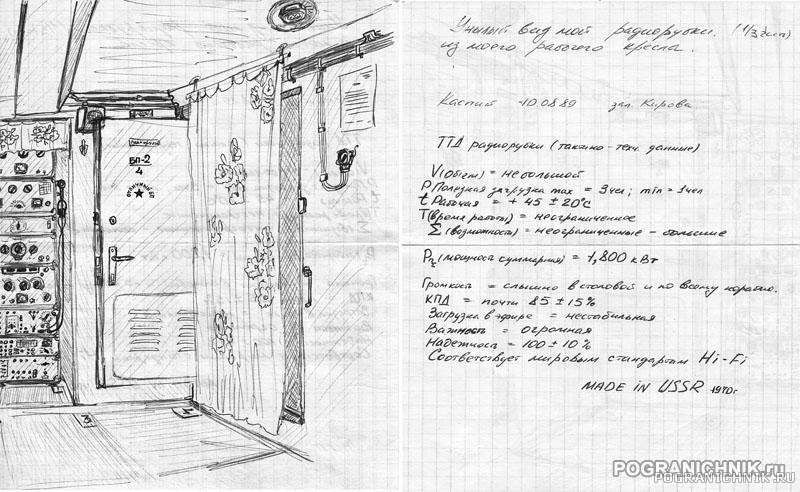 БП-2
4
ОТЛИЧНЫЙ БП
Унылый вид моей радиорубки. (1/3 часть)
из моего рабочего кресла.
Каспий -10.08.89 зал. Кирова
ТТД радиорубки (тактико-техн. данные)
V(объем) = небольшой
P Полезная загрузка max = 3 чел; min = 1 чел
t Рабочая = + 45 ± 20°С
T(время работы) = неограниченное
Σ (возможность) = неограниченные - большие
PΣ (мощность суммарная) = 1,800 кВт
Громкость = слышно в столовой и по всему кораблю.
КПД = почти 85 ± 15%
Загрузка в эфире = нестабильная
Важность = огромная
Надежность = 100 ± 10%
Соответствует мировым стандартам Hi-Fi
MADE iN USSR 1970г
POGRANICHNIK.ru
POGRANICHNIK.RU